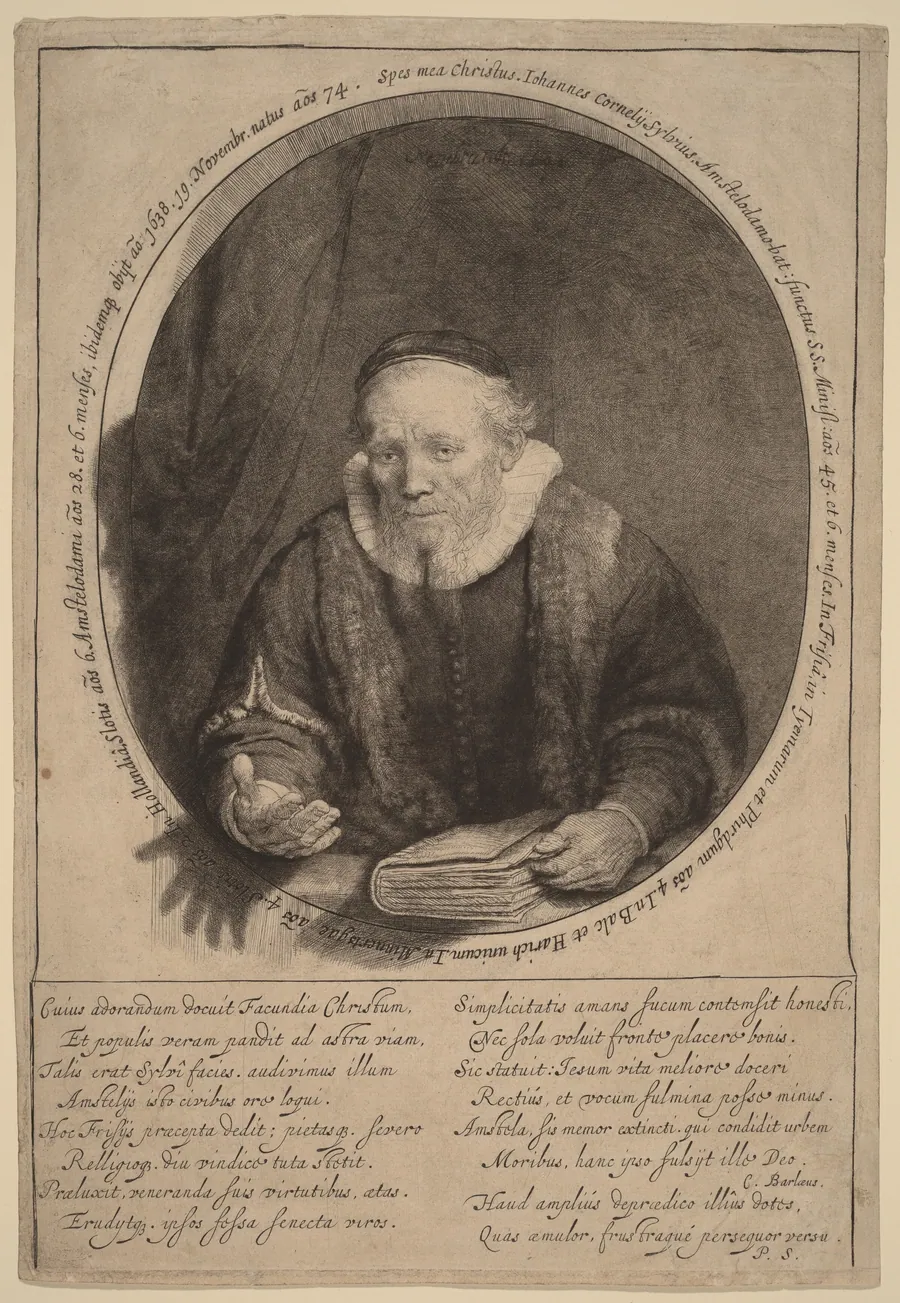 Spes mea Christus. Iohannes Cornelij Sylvius, Amstelodamobat: functus S.S. Minist: aõs 45. et 6. menses. In Frisiâ, in Tyenarum et Phirdgum aõs 4. In Balc et Harich unicum. In Minnertsgae aõs 4. Slotis aõs 2. In Hollandiâ, Slotis aõs 6. Amstelodami aõs 28. et 6. menses, ibidemq3 obijt ão 1638. 19. Novembr. natus aõs 74.
Cuius adorandum docuit Facundia Christum,
Et populis veram pandit ad astra viam,
Talis erat Sylvî facies. audivimus illum
Amstelijs isto civibus ore loqui.
Hoc Frisijs præcepta dedit; pietasq3. severo
Relligioq3. diu vindice tuta stetit.
Præluxit, veneranda suis virtutibus, ætas.
Erudytq3. ipsos fessa senecta viros.
Simplicitatis amans fucum contemsit honesti,
Nec sola voluit fronte placere bonis.
Sic statuit: Iesum vita meliore doceri
Rectiùs, et vocum fulmina posse minus.
Amstela, sis memor extincti. qui condidit urbem
Moribus, hanc ipso fulsijt ille Deo.
C. Barlæus.
Haud ampliús deprædico illîus dotes,
Quas æmulor, frustraqué persequor versu.
P. S.